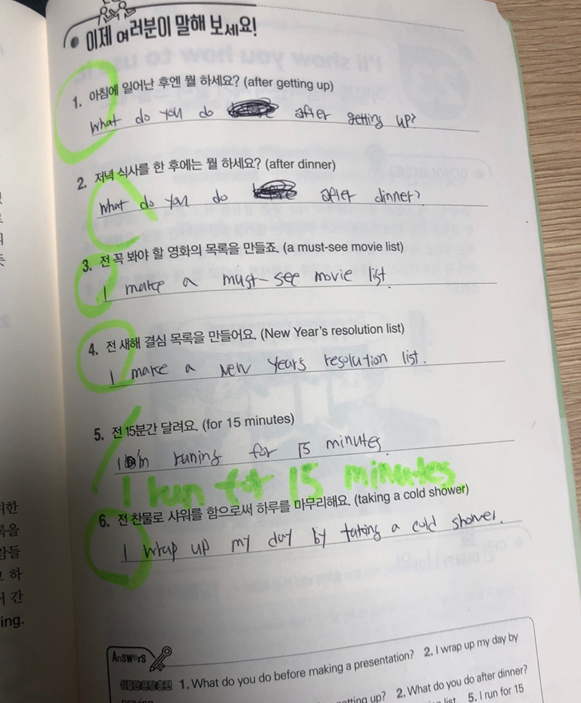 이제 여러분이 말해 보세요!
1. 아침에 일어난 후엔 뭘 하세요? (after getting up)
What do you do after getting up?
2. 저녁 식사를 한 후에는 뭘 하세요? (after dinner)
What do you do after dinner?
3. 전 꼭 봐야 할 영화의 목록을 만들죠. (a must-see movie list)
I make a must-see movie list.
4. 전 새해 결심 목록을 만들어요. (New Year's resolution list)
I make a New Years resolution list.
5. 전 15분간 달려요. (for 15 minutes)
runing for 15 minutes.
I run for 15 minutes.
6. 전 찬물로 샤워를 함으로써 하루를 마무리해요. (taking a cold shower)
I wrap up my day by taking a cold shower.
Answers
1. What do you do before making a presentation? 2. I wrap up my day by
getting up? 2. What do you do after dinner?
list 5. I run for 15
ing.